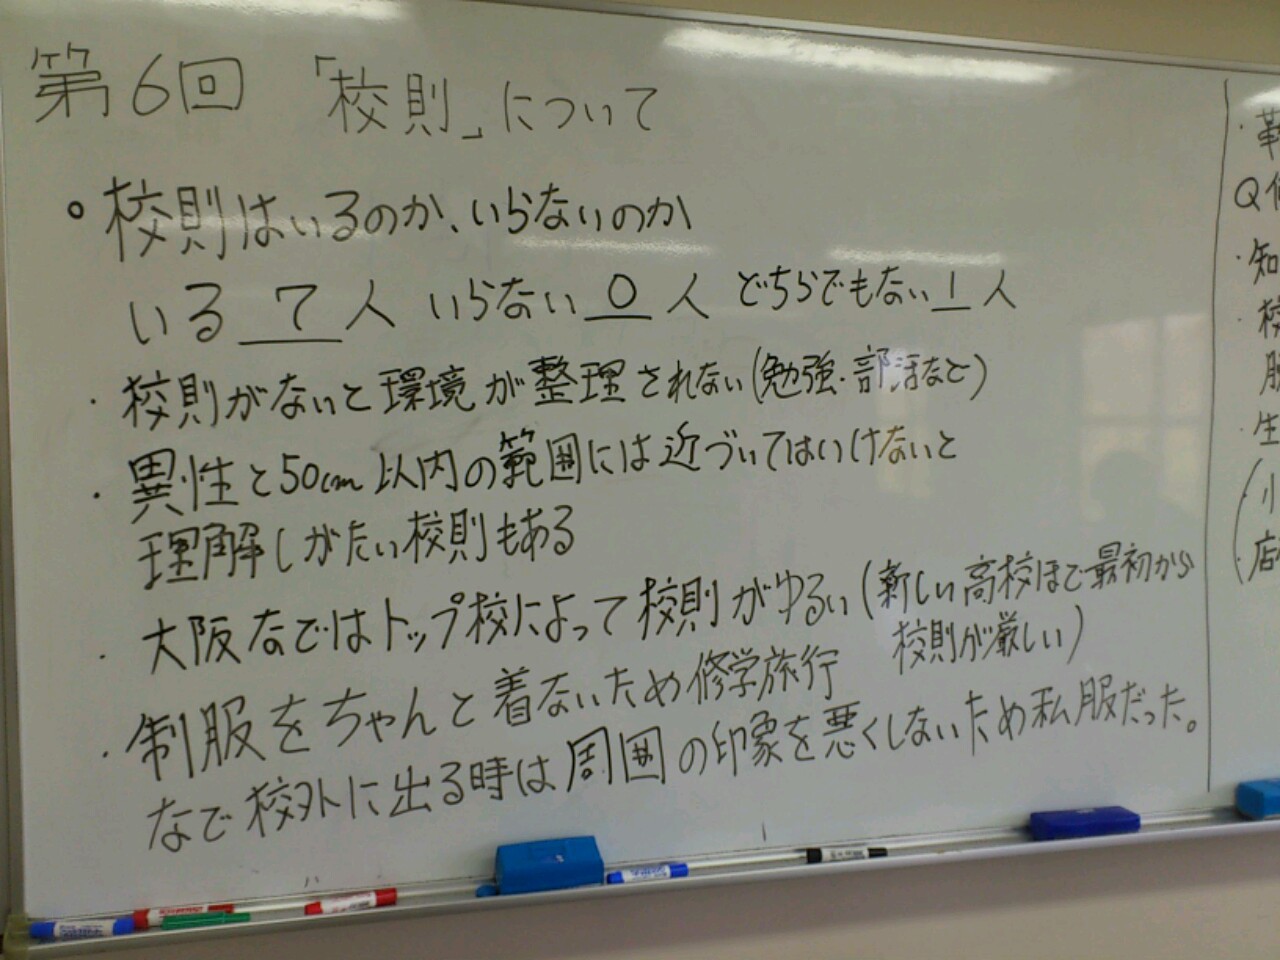 第6回 「校則」について
。校則はいるのか、いらないのか
いる 7 人 いらない 0 人 どちらでもない 1 人
・校則がないと環境が整理されない(勉強・部活など)
・異性と50cm以内の範囲には近づいてはいけないと
理解しがたい校則もある
・大阪などではトップ校によって校則がゆるい(新しい高校ほど最初から
校則が厳しい)
・制服をちゃんと着ないため修学旅行
などで校外に出る時は周囲の印象を悪くしないため私服だった。
Q
・知
・校
服
・生
・店